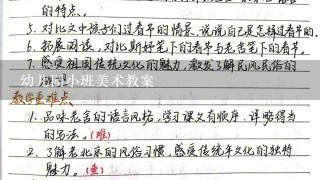 的特点。
5. 对比文中孩子们过春节的情景,说说自己是怎样过春节的。
6. 拓展阅读,对比斯好笔下的春节与老舍笔下的春节。
7. 感受祖国传统文化的魅力,激发了解民风民俗的
幼儿园小班美术教案
教学重难点
1. 品味老舍的语言风格,学习课文有顺序、详略得当
的写法。(难)
2. 了解老北京的风俗习惯,感受传统年文化的独特
魅力。(重)